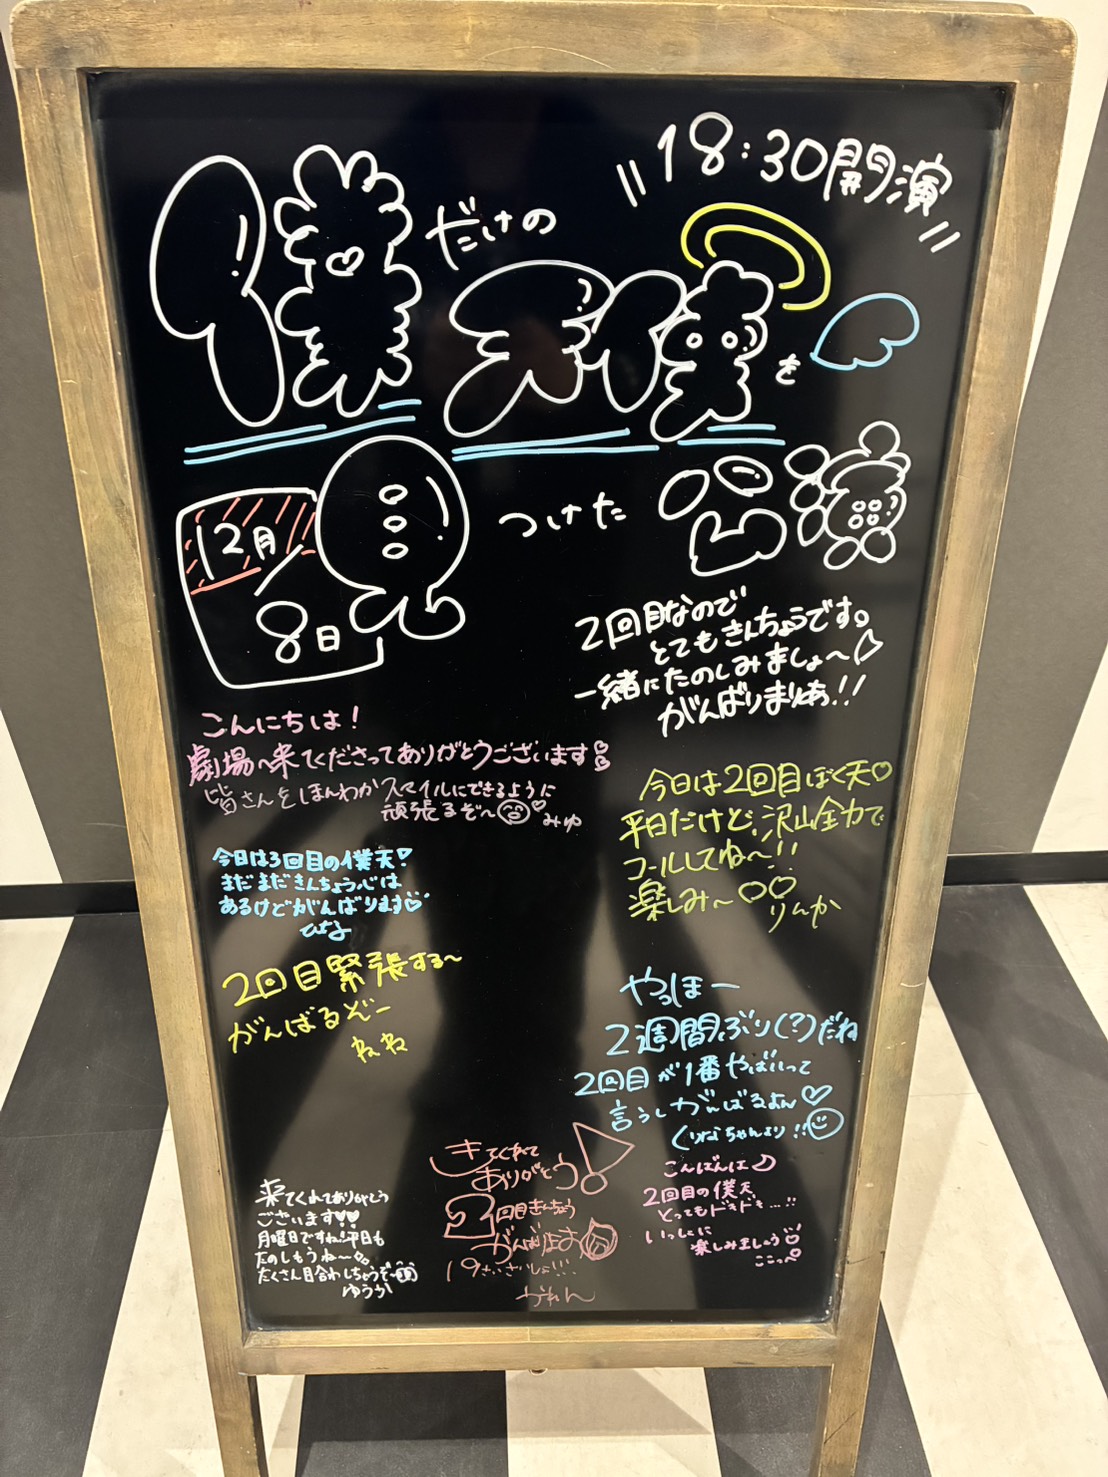 18:30開演
僕だけの
天使を
見つけた
12月
8日
2回目なので
とてもきんちょうです。
一緒にたのしみましょ〜
がんばりまりあ!!
こんにちは!
劇場へ来てくださってありがとうございます
皆さんをほんわかスマイルにできるように
頑張るぞ〜
みゆ
今日は2回目ぼく天♡
平日だけど、沢山全力で
コールしてね〜!!
楽しみ〜♡♡
りんか
今日は3回目の僕天!
まだまだきんちょう心は
あるけどがんばります♡
2回目緊張する〜
がんばるぞー
ねね
やっほー
2週間ぶり(?)だね
2回目が1番やばいって
言うしがんばるよん♡
くりなちゃんより!!
きてくれて
ありがとう!
2回目きんちょう
19さいさいしょ!!!
かれん
こんばんは
2回目の僕天、
とってもドキドキ...!!
いっしょに
楽しみましょう♡
ここっぺ
来てくれてありがとう
ございます♥♥
月曜日ですね!平日も
たのしもうね〜
たくさん目合わしちゃうぞ〜
ゆうか